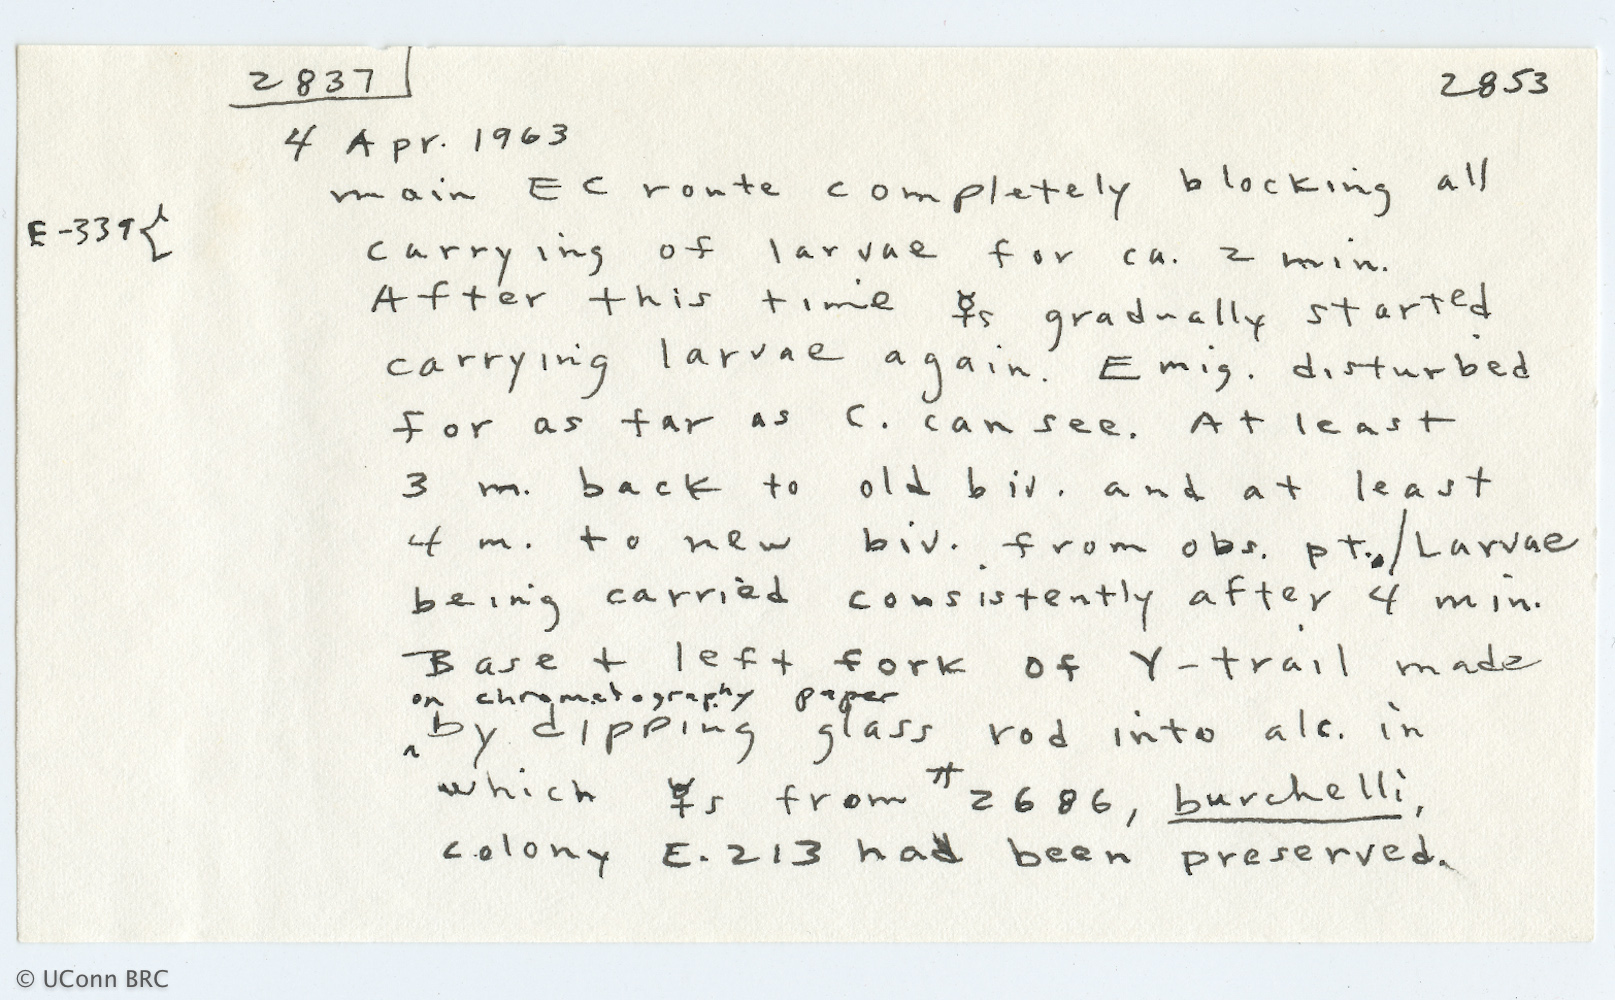 2837
2853
4 Apr. 1963
main EC route completely blocking all
E-339{
carrying of larvae for ca. 2 min.
After this time ☿s gradually started
carrying larvae again. Emig. disturbed
for as far as C. can see. At least
3 m. back to old biv. and at least
4 m. to new biv. from obs. pt./Larvae
being carried consistently after 4 min.
Base + left fork of Y-trail made
on chromatography paper
^by dipping glass rod into alc. in
which ☿s from #2686, burchelli,
colony E-213 had been preserved.
© UConn BRC